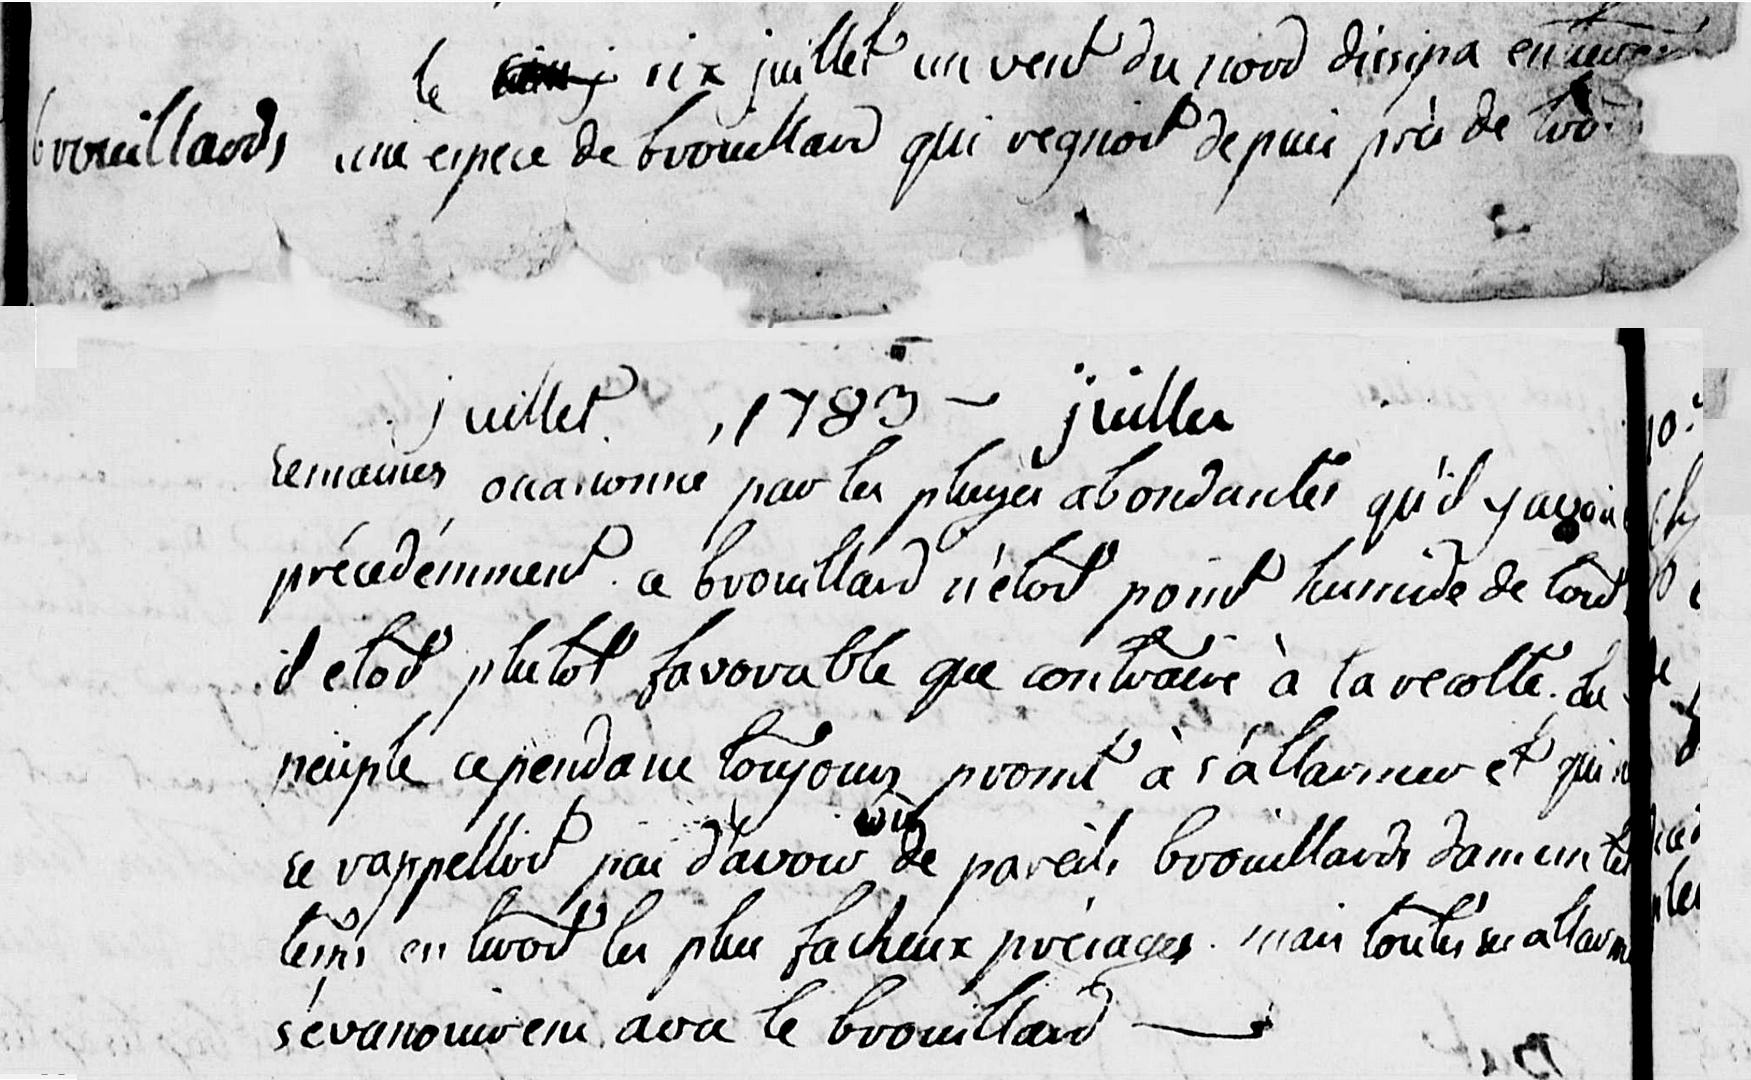 le six juillet un vent du nord dissipa entierem
brouillards une espece de brouillard qui regnoit depuis près de troi
juillet 1783 - juillet
semaines occasionné par les pluyes abondantes qu'il y avoit
précedémment. ce brouillard n'etoit point humide de tout
il etoit plutot favorable que contraire à la recolte. Le
peuple cependant toujours promt à s'allarmer et qui n
se rappelloit pas d'avoir vu de pareils brouillards dans un tel
tems en tiroit les plus facheux présages. mais toutes ses allarm
s'evanouirent avec le brouillard